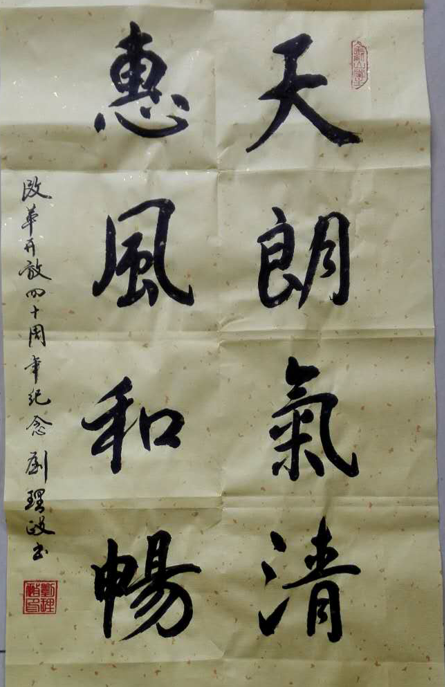 天朗氣清
惠風和暢
改革开放四十周年纪念 劉理政书